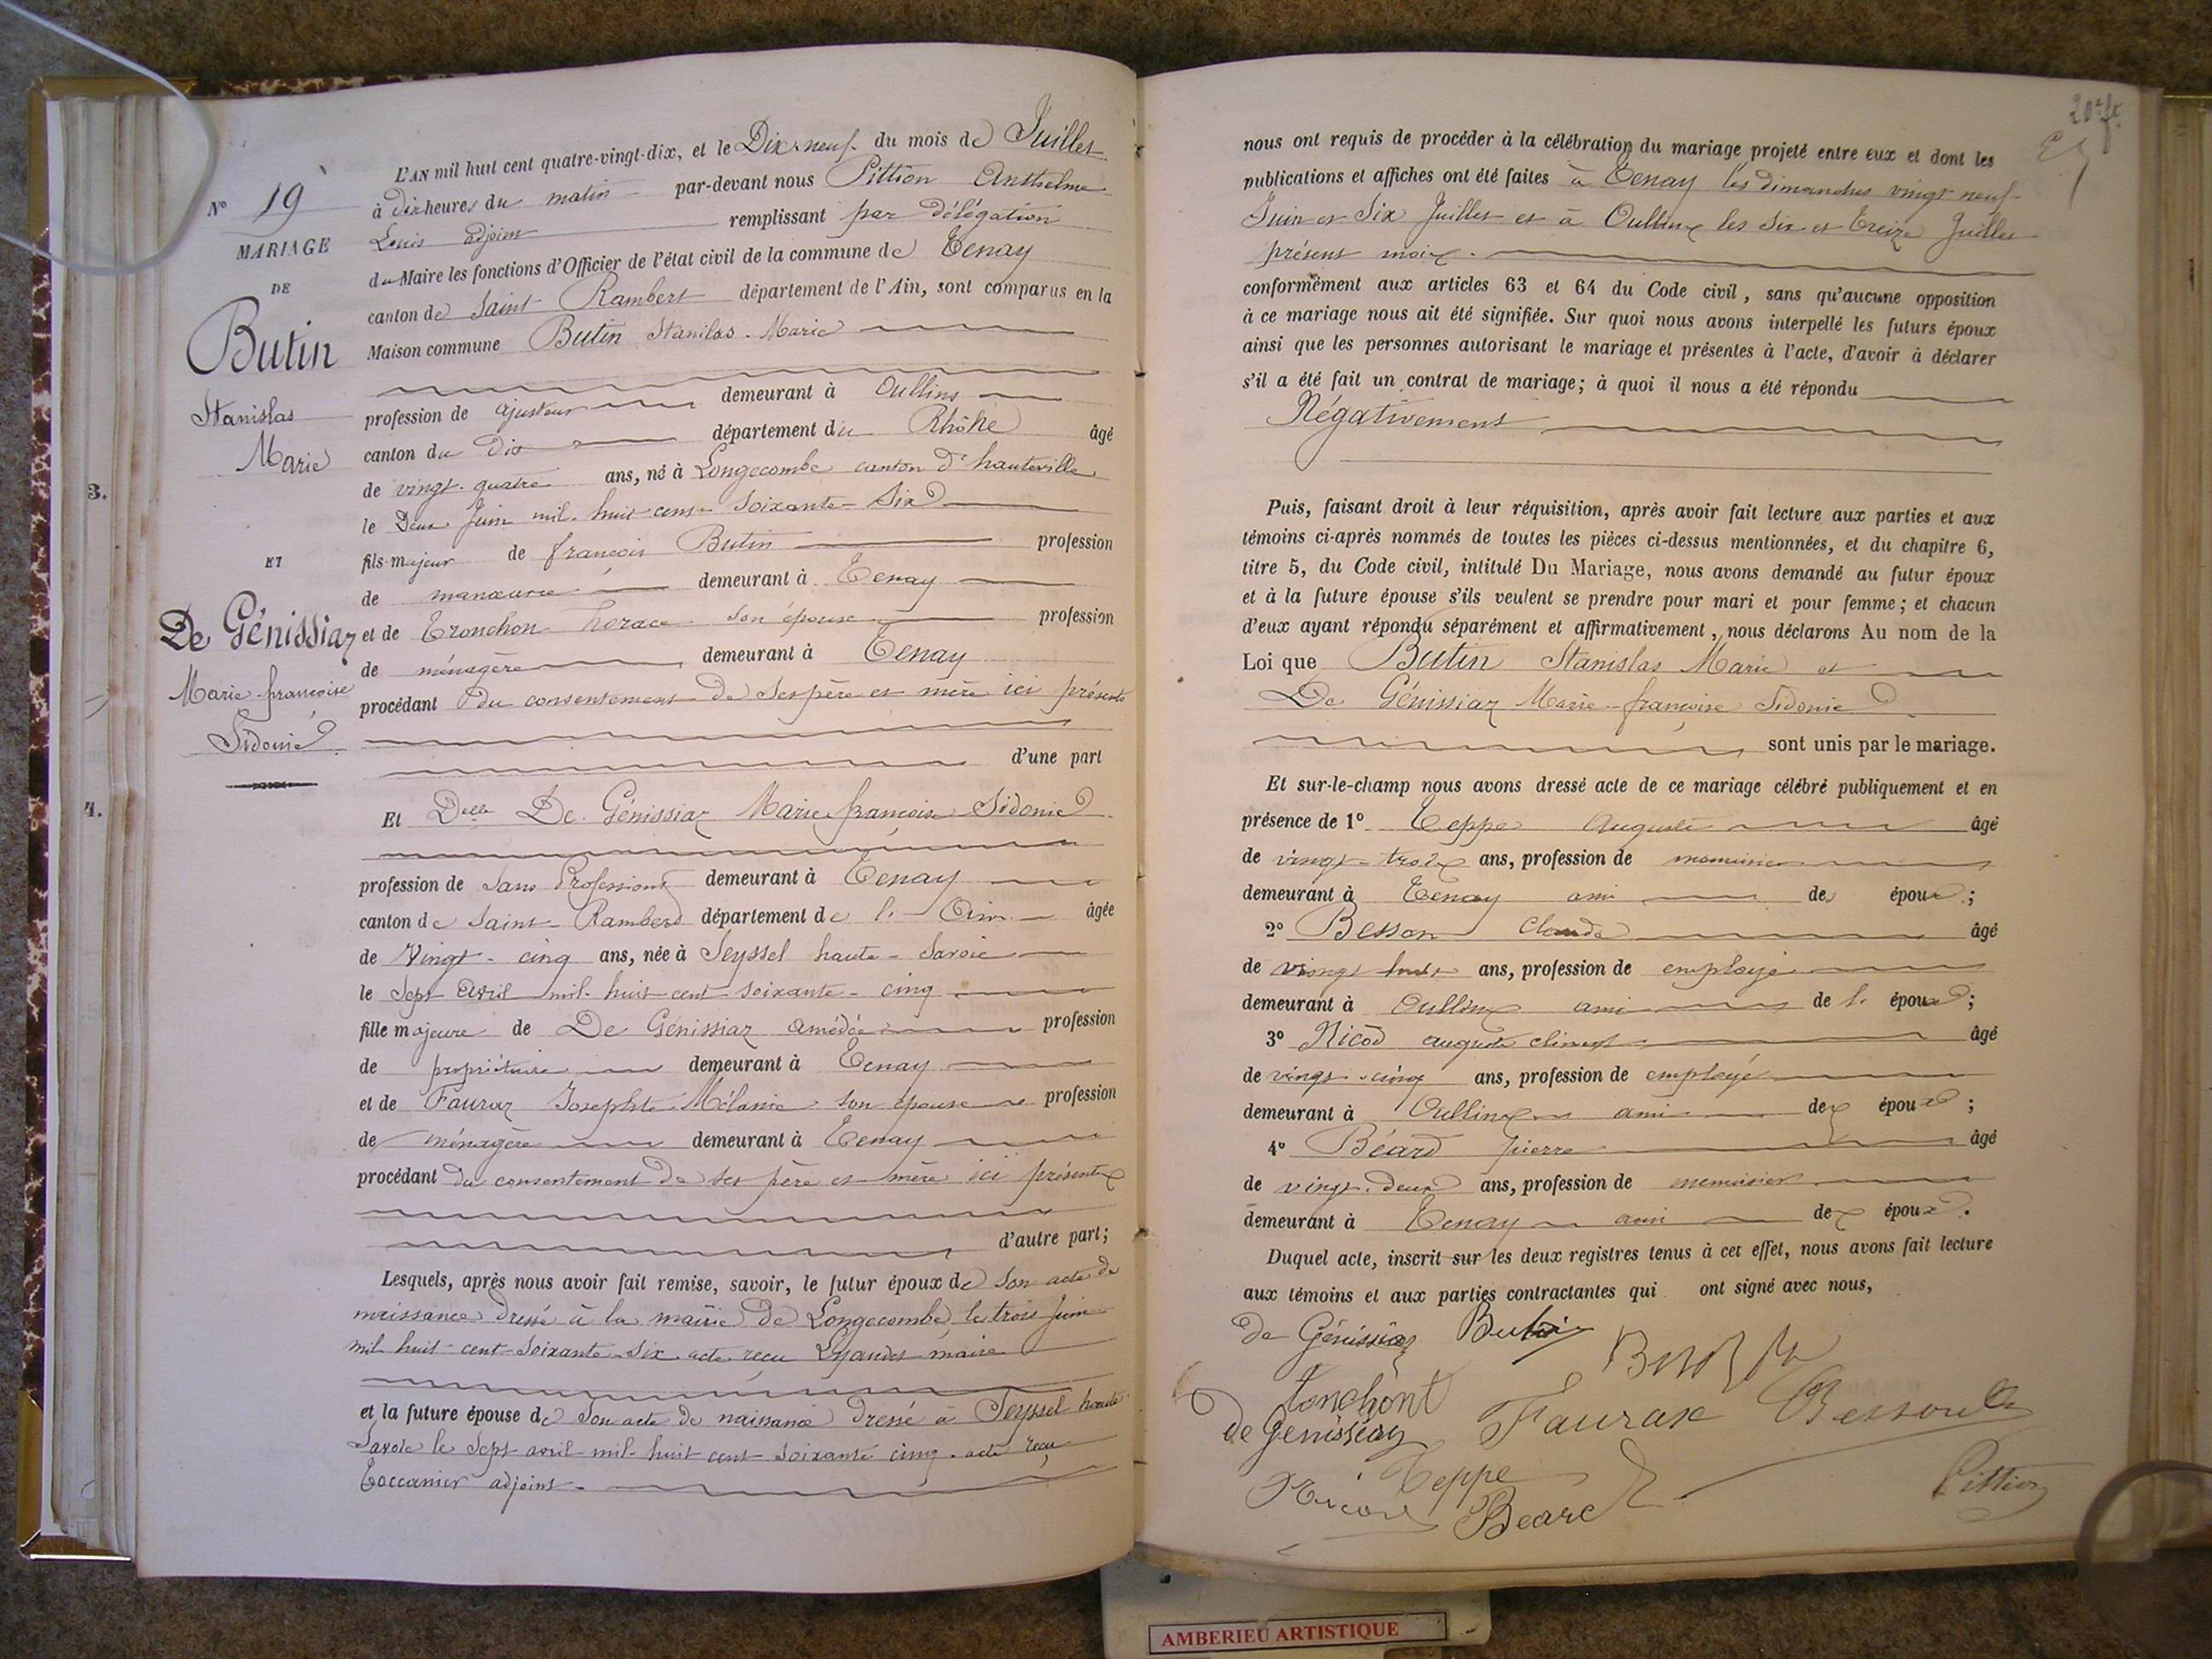 L'AN mil huit cent quatre-vingt-dix, et le Dix-neuf du mois de Juillet
à dix heures du matin par-devant nous Pittion Anthelme
Louis adjoint remplissant par délégation
du Maire les fonctions d'Officier de l'état civil de la commune de Tenay
canton de Saint Rambert département de l'Ain, sont comparus en la
Maison commune Butin Stanilas Marie
profession de ajusteur demeurant à Oullins
canton du Dit département du Rhône âgé
de vingt-quatre ans, né à Longecombe canton d'hauteville
le Deux Juin mil huit cent Soixante-Six
fils majeur de françois Butin profession
de manœuvre demeurant à Tenay
et de Tronchon horace son épouse profession
de ménagère demeurant à Tenay
procédant du consentement de ses père et mère ici présents
d'une part
Et Delle De Génissiaz Marie françoise Sidonie
profession de Sans Profession demeurant à Tenay
canton de Saint-Rambert département de l'Ain âgée
de Vingt-cinq ans, née à Seyssel haute-Savoie
le Sept Avril mil huit cent soixante-cinq
fille majeure de De Génissiaz Amédée profession
de propriétaire demeurant à Tenay
et de Faurax Josephte Mélanie son épouse profession
de ménagère demeurant à Tenay
procédant du consentement de ses père et mère ici présents
d'autre part;
Lesquels, après nous avoir fait remise, savoir, le futur époux de Son acte de
naissance dressé à la mairie de Longecombe le trois Juin
mil huit cent-soixante-six acte reçu maire
et la future épouse de Son acte de naissance dressé à Seyssel haute
Savoie le Sept avril mil huit cent soixante cinq. acte reçu
Toccanier adjoint.
N° 19
MARIAGE
DE
Butin
Stanislas
Marie
ET
De Génissiaz
Marie françoise
Sidonie
3.
4.
207
nous ont requis de procéder à la célébration du mariage projeté entre eux et dont les
publications et affiches ont été faites à Tenay les dimanches vingt neuf
Juin et Six Juillet et à Oullins les Six et Treize Juillet
présent mois.
conformément aux articles 63 et 64 du Code civil, sans qu'aucune opposition
à ce mariage nous ait été signifiée. Sur quoi nous avons interpellé les futurs époux
ainsi que les personnes autorisant le mariage et présentes à l'acte, d'avoir à déclarer
s'il a été fait un contrat de mariage; à quoi il nous a été répondu
Négativement
Puis, faisant droit à leur réquisition, après avoir fait lecture aux parties et aux
témoins ci-après nommés de toutes les pièces ci-dessus mentionnées, et du chapitre 6,
titre 5, du Code civil, intitulé Du Mariage, nous avons demandé au futur époux
et à la future épouse s'ils veulent se prendre pour mari et pour femme; et chacun
d'eux ayant répondu séparément et affirmativement, nous déclarons Au nom de la
Loi que Butin Stanislas Marie et
De Génissiaz Marie-françoise Sidonie
sont unis par le mariage.
Et sur-le-champ nous avons dressé acte de ce mariage célébré publiquement et en
présence de 1° Teppe Auguste âgé
de vingt-trois ans, profession de menuisier
demeurant à Tenay ami des époux;
2° Besson Claude âgé
de vingt huit ans, profession de employé
demeurant à Oullins ami de l'époux;
3° Nicod auguste climent âgé
de vingt-cinq ans, profession de employé
demeurant à Oullins ami des époux;
4° Béard pierre âgé
de vingt-deux ans, profession de menuisier
demeurant à Tenay ami des époux.
Duquel acte, inscrit sur les deux registres tenus à cet effet, nous avons fait lecture
aux témoins et aux parties contractantes qui ont signé avec nous,
de Génissiaz Butin
tonchont
de genissiaz Faurax Besson
Teppe
Nicod Béard Pittion
AMBERIEU ARTISTIQUE